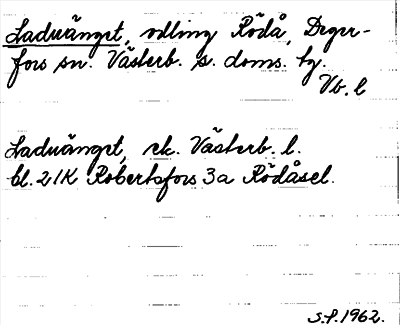 Laduänget, odling Rödå, Deger-
fors sn. Västerb. s. doms. hg.
Vb. l
Laduänget, ek. Västerb. l.
bl. 21K Robertsfors 3a Rödåsel.
S.P. 1962.